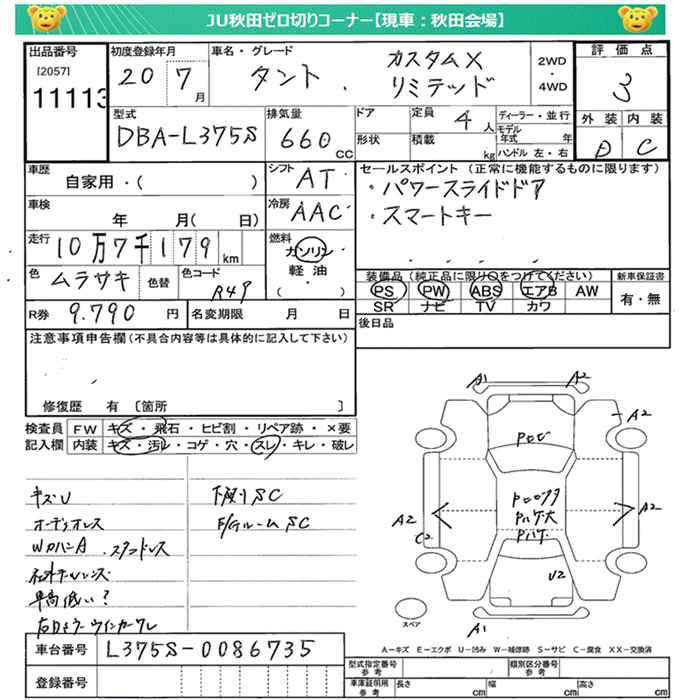 JU秋田ゼロ切りコーナー【現車：秋田会場】
出品番号
[2057]
11113
初度登録年月
20 7月
車名・グレード
タント . カスタムX
リミテッド
2WD
4WD
評価点
3
外装 内装
D C
型式
DBA-L375S
排気量
660 CC
ドア
形状
定員 4人
積載 kg
ディーラー・並行
モデル年式 年
ハンドル 左・右
車歴
自家用・( )
シフト
AT
セールスポイント (正常に機能するものに限ります)
・パワースライドドア
・スマートキー
車検
年 月( 日)
冷房
AAC
走行
10万7千179km
燃料
ガソリン
軽油
( )
色
ムラサキ 色替
色コード
R49
装備品(純正品に限り○をつけてください)
PS PW ABS エアB AW
SR ナビ TV カワ
新車保証書
有・無
R券 9.790円
名変期限 月 日
後日品
注意事項申告欄(不具合内容等は具体的に記入して下さい)
修復歴 有 〔箇所 〕
検査員記入欄
FW キズ・飛石・ヒビ割・リペア跡・×要
内装 キズ・汚レ・コゲ・穴・スレ・キレ・破レ
キズU
下廻りSC
オーディオレス
F/GルームSC
WカバーA スタッドレス
車高低い?
右ドアミラーウインカーワレ
A1 A2
A2
A2
C2
A2
U2
A1
スペア
A−キズ E−エクボ U−凹み W−補修跡 S−サビ C−腐食 XX−交換済
車台番号
L375S-0086735
登録番号
型式指定番号
参考
類別区分番号
参考
車庫証明用
参考
長さ cm
幅 cm
高さ cm